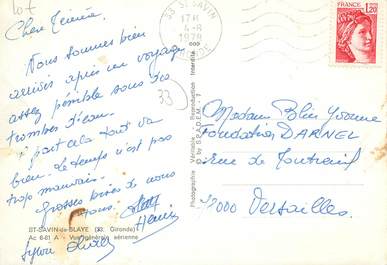 Chère Mémère.
Nous sommes bien
arrivés après un voyage
assez pénible sous des
trombes d'eau.
A part cela tout va
bien. Le temps n'est pas
trop mauvais.
Grosses bises de nous
tous.
Henri
Sylvie Olivier
33
ST-SAVIN-de-BLAYE (33. Gironde)
Ac 6-61 A - Vue générale aérienne
Photographie Véritable - Reproduction Interdite
© by S.P.A.D.E.M.
33 ST-SAVIN
17H
4-8
1978
GIRONDE
FRANCE
1,20
Madame Blin Yvonne
Fondation DARNEL
rue de Montreuil
78000 Versailles.